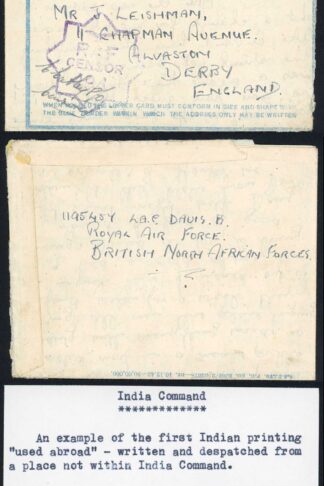 MR J. LEISHMAN,
11 CHAPMAN AVENUE.
ALVASTON
DERBY
ENGLAND.
R.A.F
CENSOR
WHEN FOLDED THE LETTER CARD MUST CONFORM IN SIZE AND SHAPE
THE BLUE BORDER WITHIN WHICH THE ADDRESS ONLY MAY BE WRITTEN
1195457 L.A.C DAVIS. B.
ROYAL AIR FORCE.
BRITISH NORTH AFRICAN FORCES.
India Command
*************
An example of the first Indian printing
"used abroad" - written and despatched from
a place not within India Command.